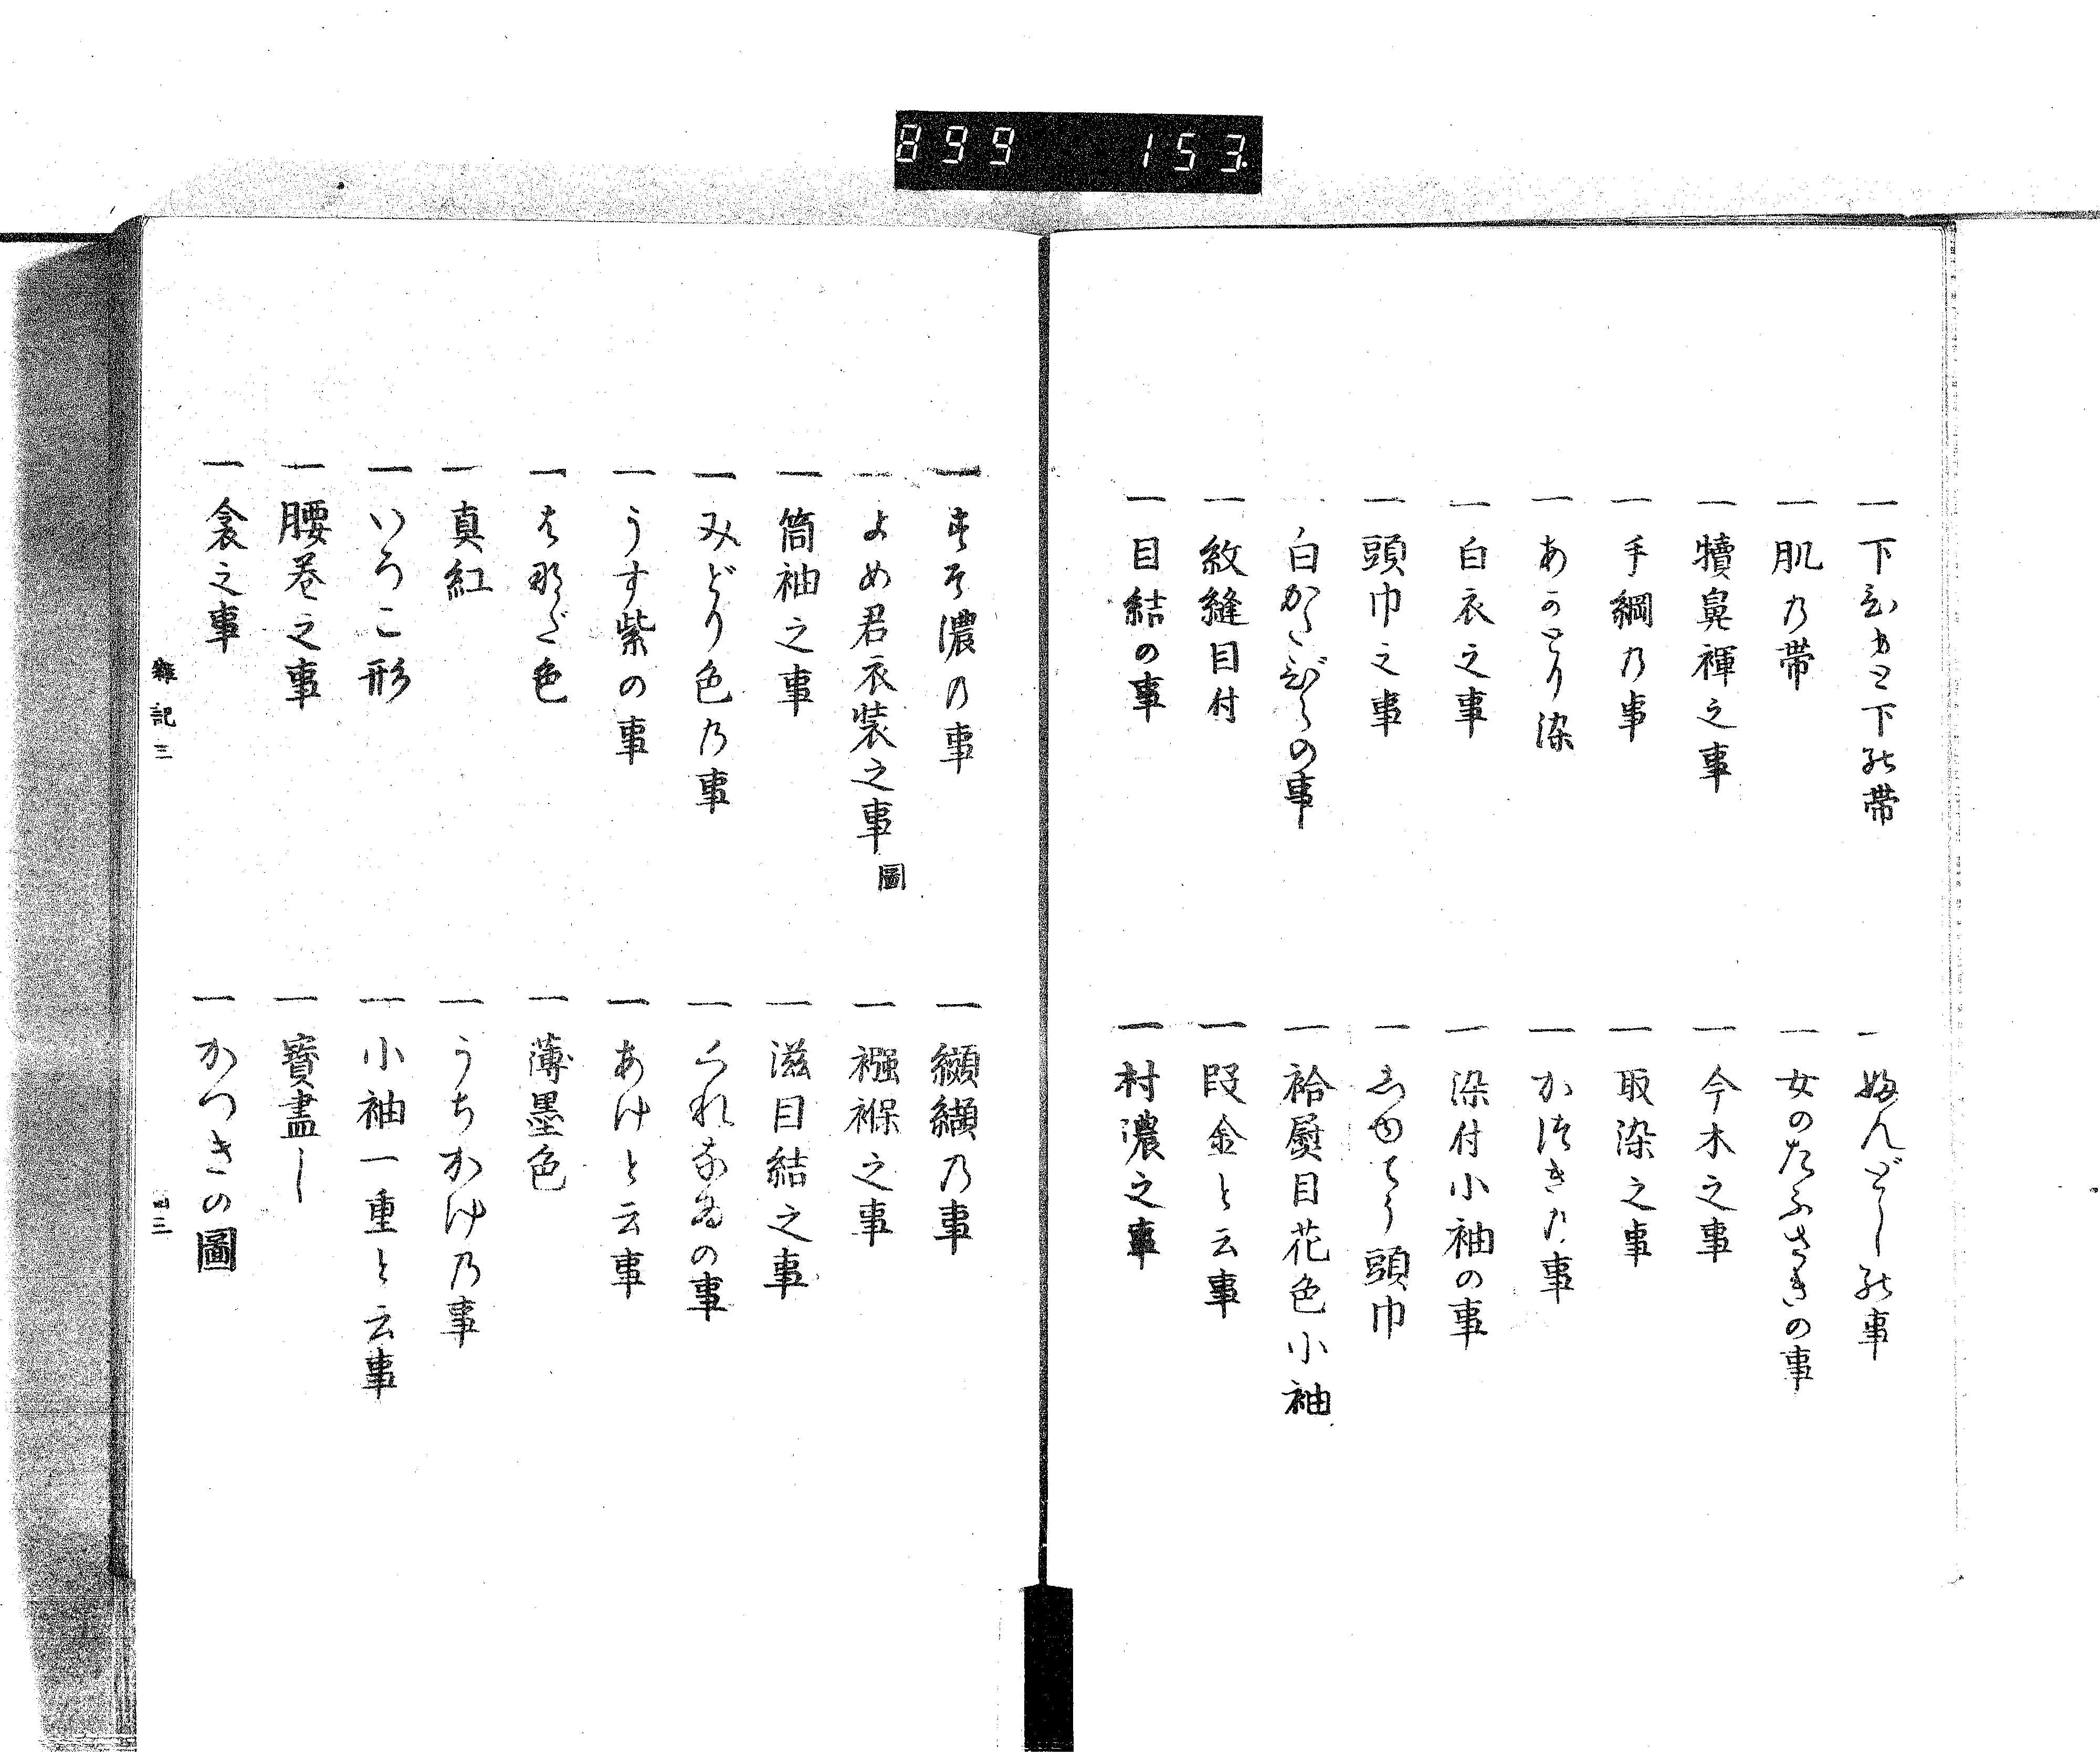 899 153
一 下ひもと下の帯 一 ふんどしの事
一 肌の帯 一 女のたふさきの事
一 犢鼻褌之事 一 今木之事
一 手綱の事 一 取染之事
一 あかとり染 一 かつきの事
一 白衣之事 一 染付小袖の事
一 頭巾之事 一 頭巾
一 白かたびらの事 一 袷熨目花色小袖
一 紋縫目付 一 段金と云事
一 目結の事 一 村濃之事
一 すそ濃の事 一 纐纈の事
一 よめ君衣装之事 圖 一 襁褓之事
一 筒袖之事 一 滋目結之事
一 みどり色の事 一 くれなゐの事
一 うす紫の事 一 あけと云事
一 はなだ色 一 薄墨色
一 真紅 一 うちかけの事
一 いろこ形 一 小袖一重と云事
一 腰巻之事 一 寶盡し
一 衾之事 一 かつきの圖
雜記三 目三